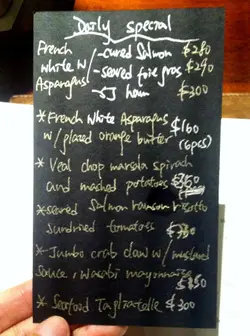 Daily special
French White w/ Asparagus
-cured Salmon $280
-seared foie gras $290
-SJ ham $300
*French White Asparagus $160
w/ glazed orange butter (6pcs)
*Veal chop marsala spinach
and mached potatoes $350
*seared Salmon risotto
sundried tomatoes $330
*Jumbo crab claw w/ mustard
sauce, wasabi mayonnaise
$350
*Seafood Tagliatelle $300